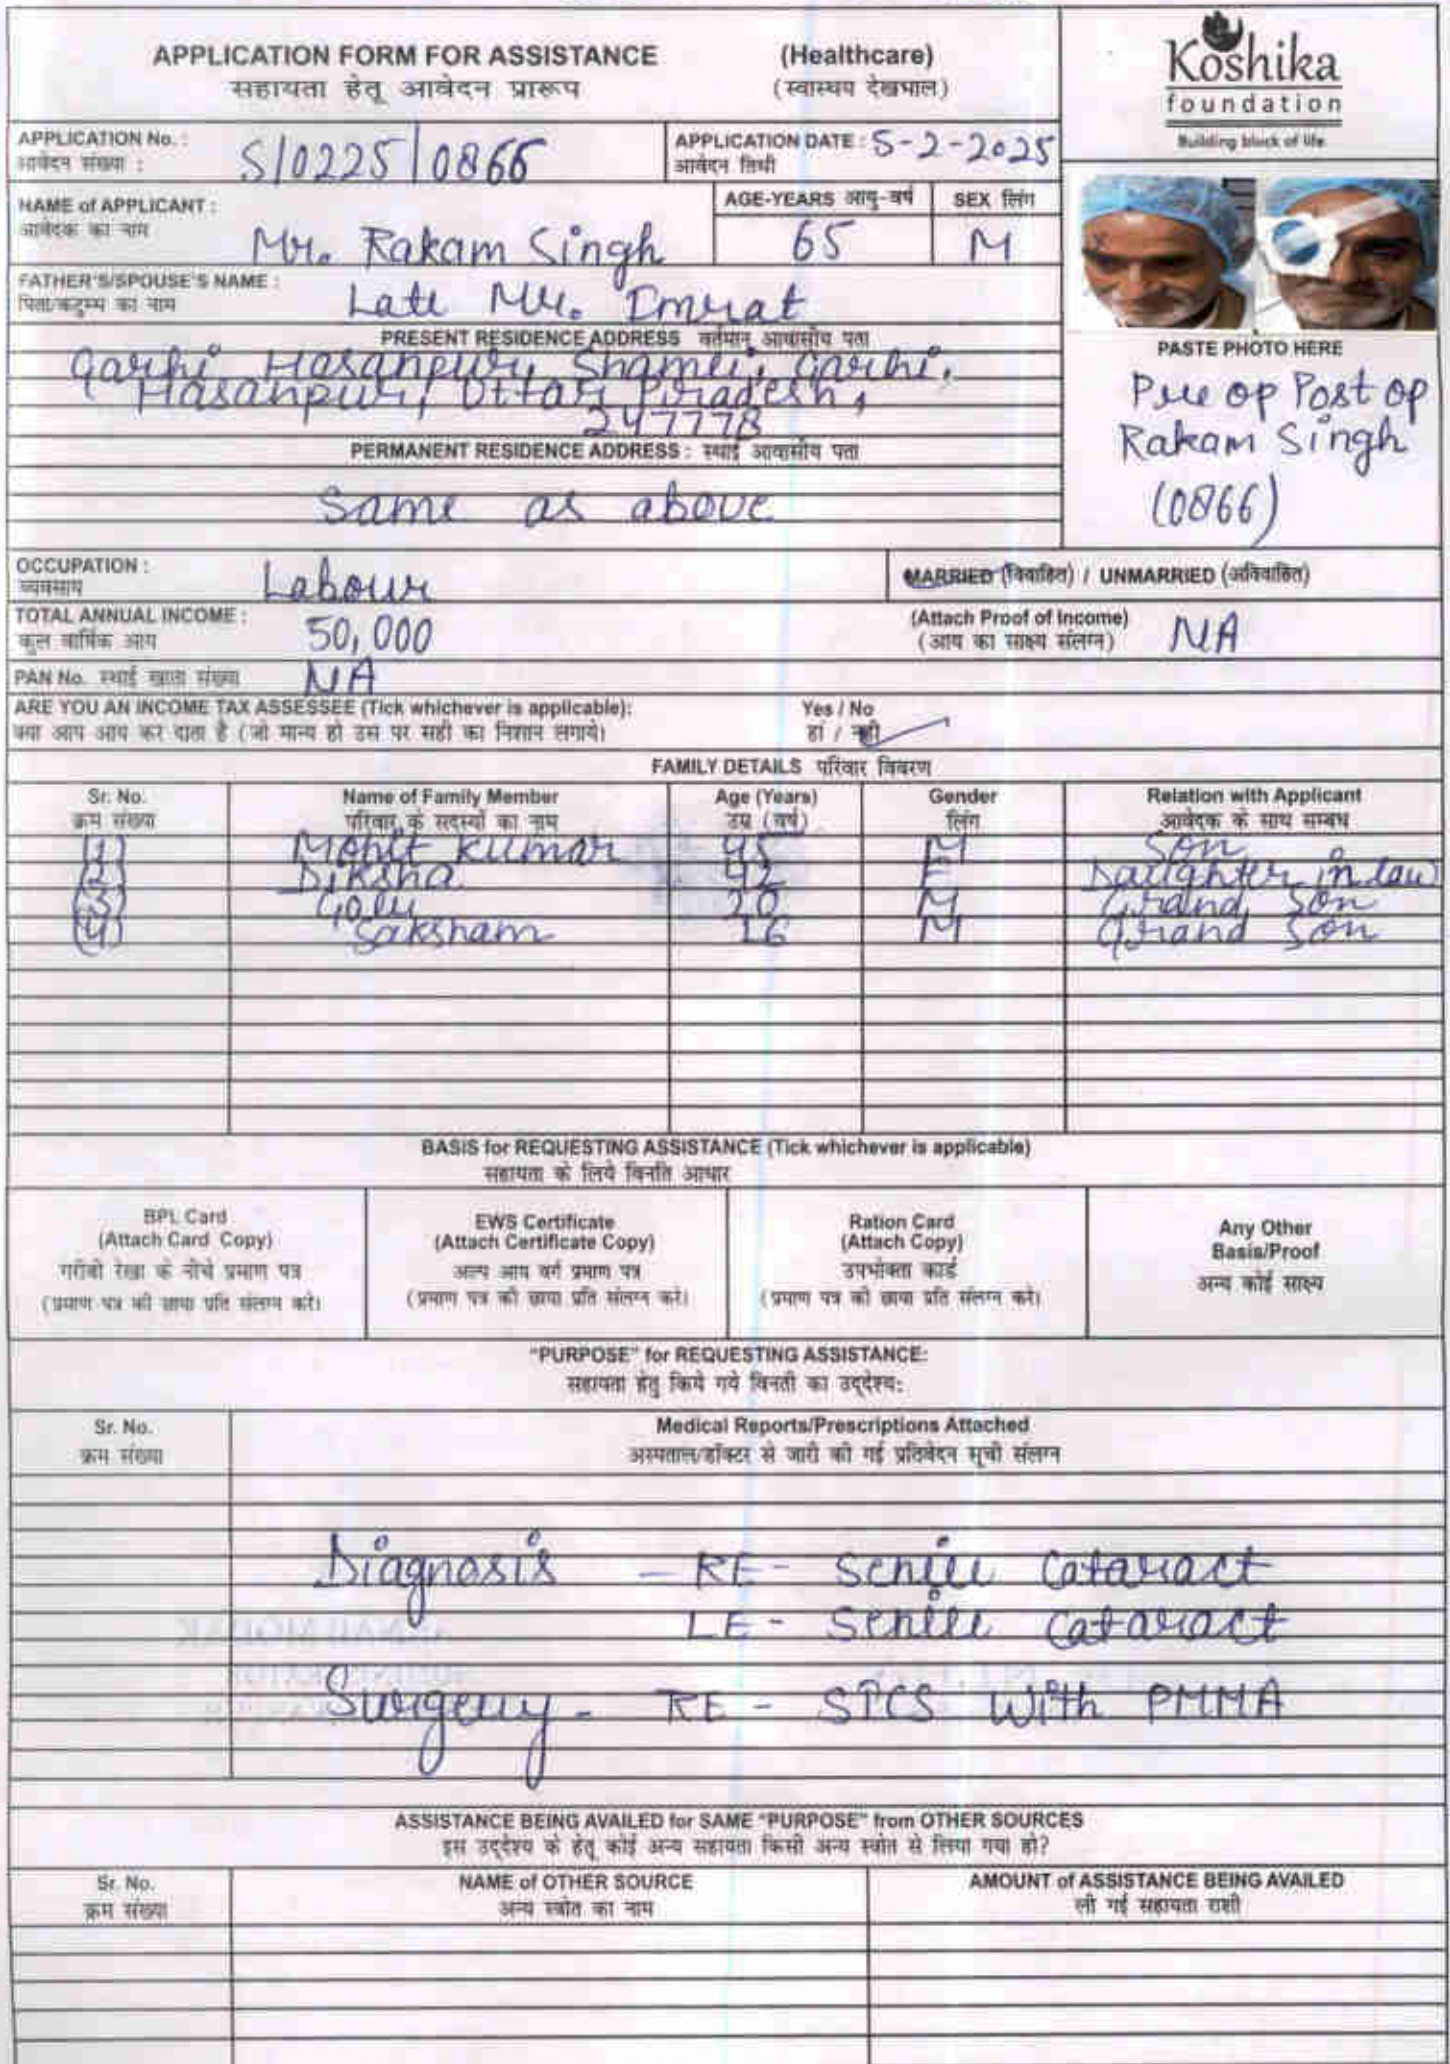 APPLICATION FORM FOR ASSISTANCE (Healthcare)
सहायता हेतू आवेदन प्रारूप (स्वास्थय देखभाल)
Koshika
foundation
Building block of life
APPLICATION No. : S/0225/0866 APPLICATION DATE : 5-2-2025
आवेदन संख्या : आवेदन तिथी
NAME of APPLICANT : AGE-YEARS आयु-वर्ष SEX लिंग
आवेदक का नाम Mr. Rakam Singh 65 M
FATHER'S/SPOUSE'S NAME : Late Mr. Imrat
पिता/कटुम्ब का नाम
PRESENT RESIDENCE ADDRESS वर्तमान आवासीय पता
Garhi Hasanpur, Shamli, Garhi,
Hasanpur, Uttar Pradesh,
247778
PERMANENT RESIDENCE ADDRESS : स्थाई आवासीय पता
Same as above
PASTE PHOTO HERE
Pre op Post op
Rakam Singh
(0866)
OCCUPATION : Labour MARRIED (विवाहित) / UNMARRIED (अविवाहित)
व्यवसाय
TOTAL ANNUAL INCOME : 50,000 (Attach Proof of Income) NA
कुल वार्षिक आय (आय का साक्ष्य संलग्न)
PAN No. स्थाई खाता संख्या NA
ARE YOU AN INCOME TAX ASSESSEE (Tick whichever is applicable): Yes / No
क्या आप आय कर दाता है (जो मान्य हो उस पर सही का निशान लगाये) हां / नही
FAMILY DETAILS परिवार विवरण
Sr. No. Name of Family Member Age (Years) Gender Relation with Applicant
क्रम संख्या परिवार के सदस्यों का नाम उम्र (वर्ष) लिंग आवेदक के साथ सम्बंध
(1) Mohit Kumar 45 M Son
(2) Diksha 42 F Daughter in law
(3) Golu 20 M Grand Son
(4) Saksham 16 M Grand Son
BASIS for REQUESTING ASSISTANCE (Tick whichever is applicable)
सहायता के लिये विनति आधार
BPL Card
(Attach Card Copy)
गरीबी रेखा के नीचे प्रमाण पत्र
(प्रमाण पत्र की छाया प्रति संलग्न करे।
EWS Certificate
(Attach Certificate Copy)
अल्प आय वर्ग प्रमाण पत्र
(प्रमाण पत्र की छाया प्रति संलग्न करे।
Ration Card
(Attach Copy)
उपभोक्ता कार्ड
(प्रमाण पत्र की छाया प्रति संलग्न करे।
Any Other
Basis/Proof
अन्य कोई साक्ष्य
"PURPOSE" for REQUESTING ASSISTANCE:
सहायता हेतु किये गये विनती का उद्देश्य:
Sr. No. Medical Reports/Prescriptions Attached
क्रम संख्या अस्पताल/डॉक्टर से जारी की गई प्रतिवेदन सूची संलग्न
Diagnosis - RE - Senile Cataract
LE - Senile Cataract
Surgery - RE - SICS With PMMA
ASSISTANCE BEING AVAILED for SAME "PURPOSE" from OTHER SOURCES
इस उद्देश्य के हेतू कोई अन्य सहायता किसी अन्य स्त्रोत से लिया गया हो?
Sr. No. NAME of OTHER SOURCE AMOUNT of ASSISTANCE BEING AVAILED
क्रम संख्या अन्य स्त्रोत का नाम ली गई सहायता राशी